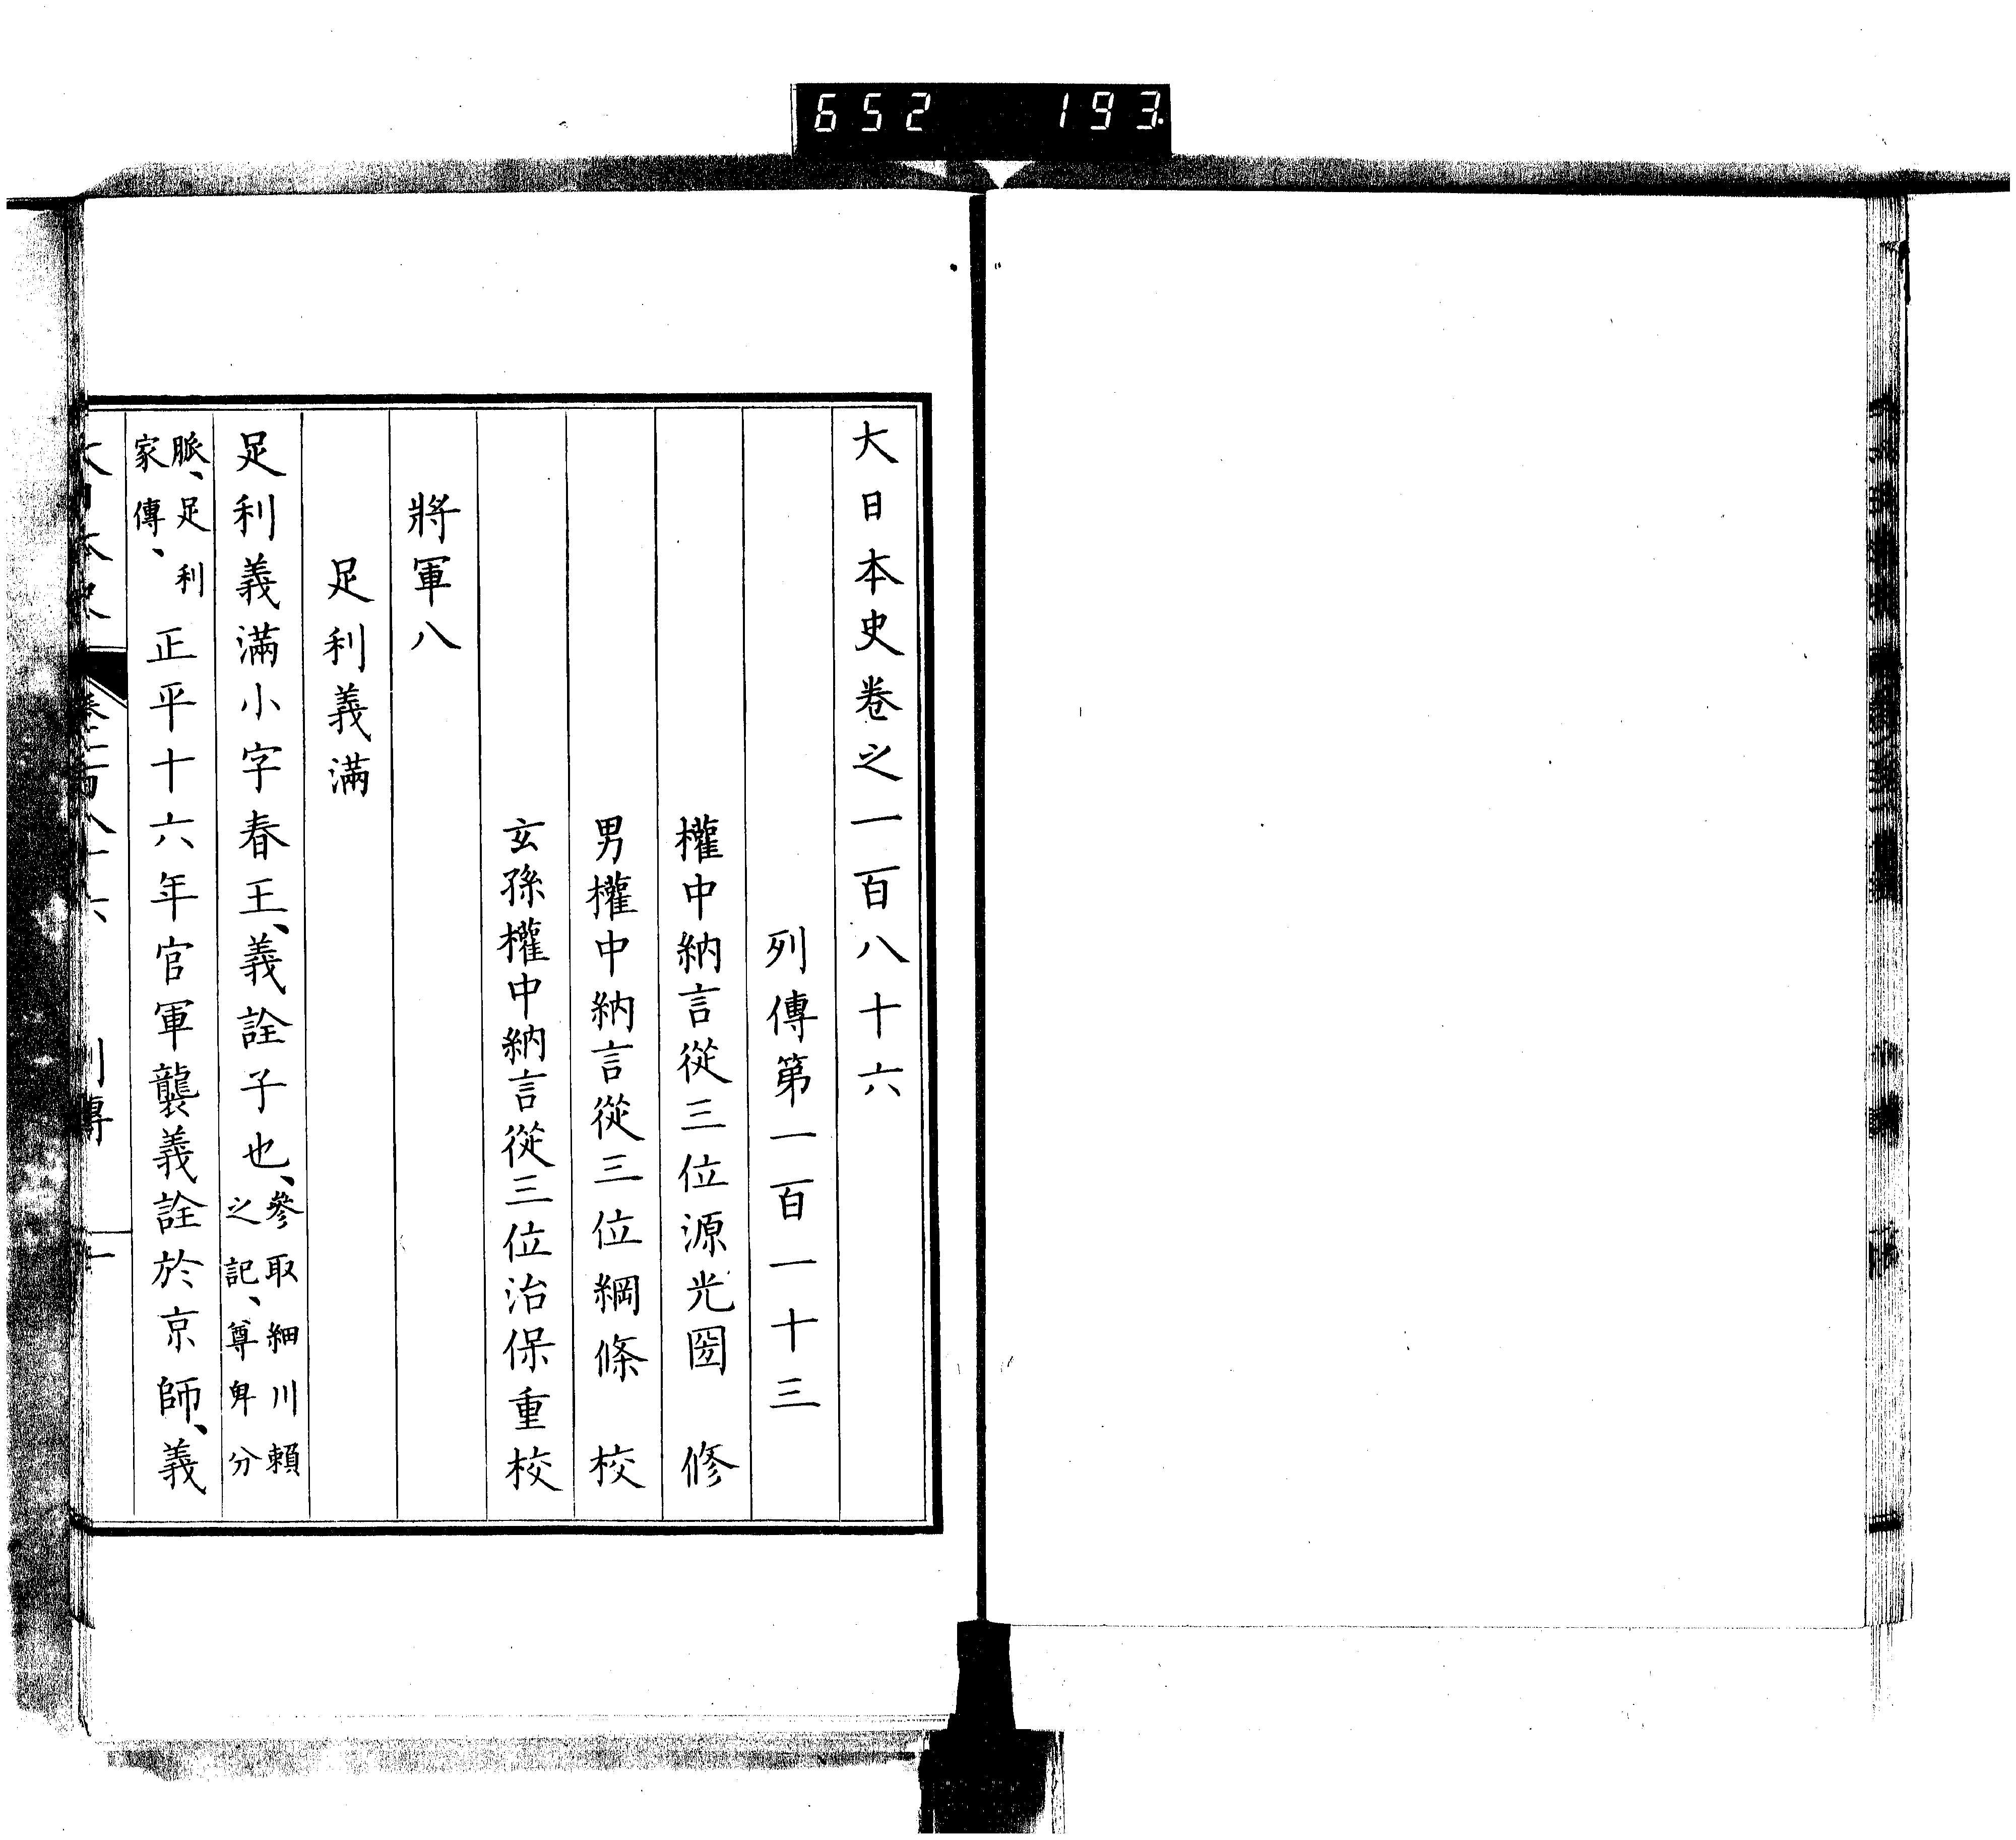 652 193
大日本史卷之一百八十六
列傳第一百一十三
權中納言從三位源光圀 修
男權中納言從三位綱條 校
玄孫權中納言從三位治保重校
將軍八
足利義滿
足利義滿小字春王、義詮子也、參取細川賴之記、尊卑分
脈、足利家傳、正平十六年官軍襲義詮於京師、義